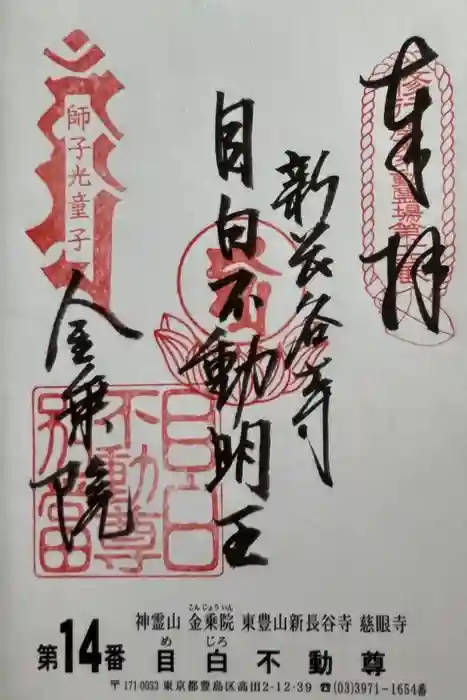 奉拝
新長谷寺
目白不動明王
金乗院
師子光童子
目白
不動尊
別當
神霊山 金乗院 東豊山新長谷寺 慈眼寺
こんじょういん
第14番 目白不動尊
め じろ
〒171-0033 東京都豊島区高田2-12-39 ☎(03)3971-1654番